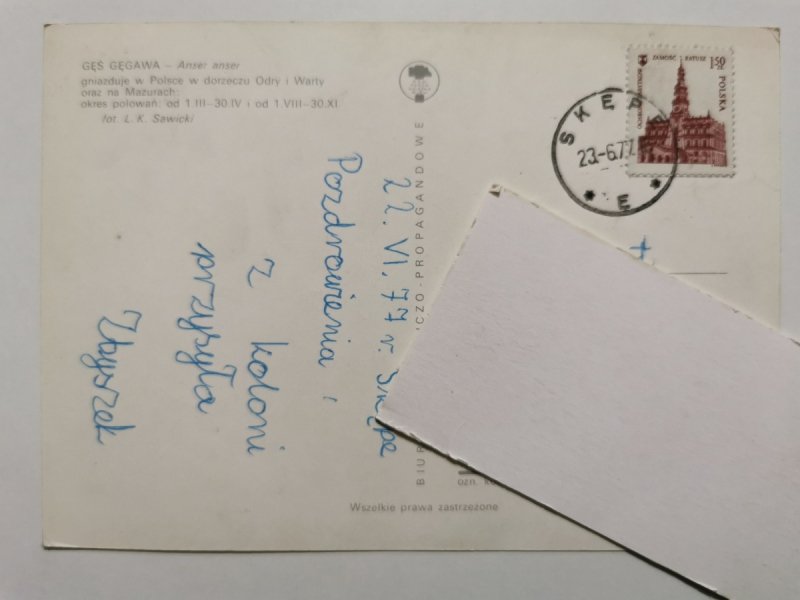 GĘŚ GĘGAWA – Anser anser
gniazduje w Polsce w dorzeczu Odry i Warty
oraz na Mazurach;
okres polowań: od 1.III–30.IV i od 1.VIII–30.XI.
fot. L. K. Sawicki
ZAMOŚĆ RATUSZ
1,50 ZŁ
POLSKA
SKĘPE
23.-6.77
E
22.VI.77 r. Skępe
Pozdrowienia
z koloni
przysyła
Zbyszek
BIUR
CZO-PROPAGANDOWE
ozn. k
Wszelkie prawa zastrzeżone